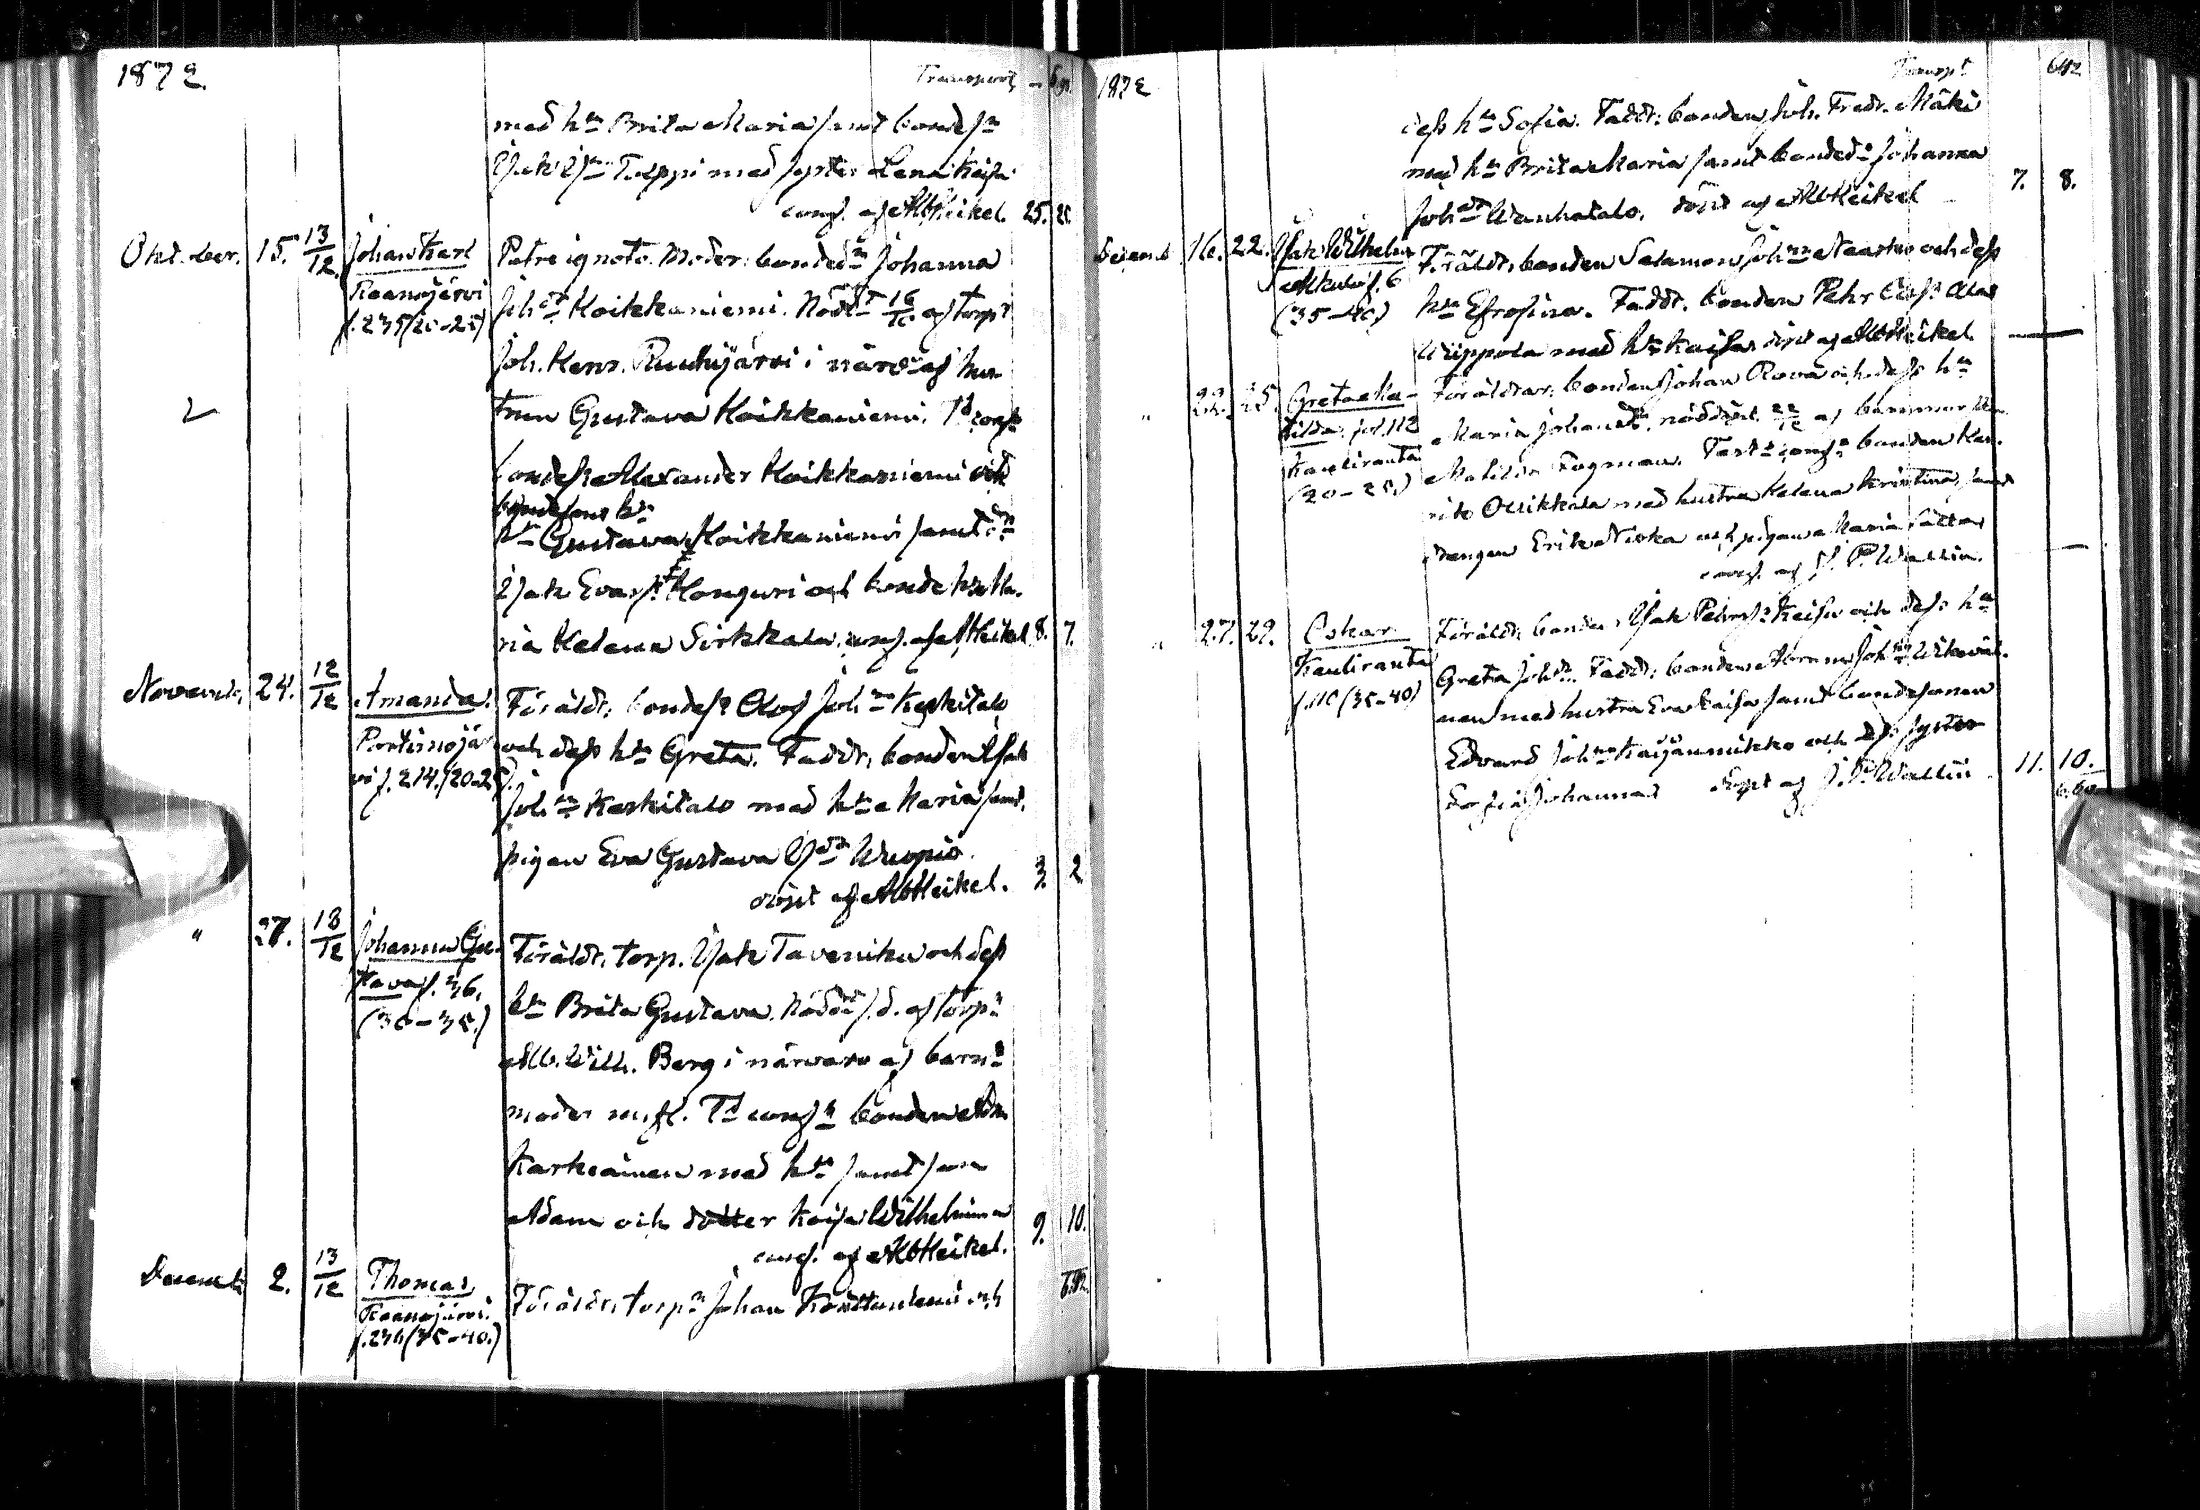 1872.
Transport
med h:n Brita Maria samt bondes:n
Isak Is:n Toppi med syster Lena Kajsa
conf. af Alb Heikel. 25.
Oktober. 15. 13/12. Johan Karl
Raanujärvi
f. 235 (20-25)
Patre ignoto. Moder: bonded:n Johanna
Joh:dr Koikkaniemi. Nöddt 16/10 af torp:r
Joh. Henr. Ruuhijärvi i närv:o af hus-
trun Gustava Koikkaniemi. T:d conf:r
bondes:n Alexander Koikkaniemi och
bondesons h:n
Gustava Koikkaniemi samt
Isak Evas:n Konguri och bonde h:n Ma-
ria Helena Sirkkala, conf. af A Heikel 8. 7.
Novemb. 24. 12/12 Amanda.
Portimojär-
vi f. 214. (20-25).
Föräldr: bondes:n Olof Joh:n Keskitalo
och dess h:n Greta. Faddr: bonden Isak
Joh:n Keskitalo med h:n Maria samt
pigan Eva Gustava Is:dr Wuopio.
döpt af Alb Heikel. 3. 2
" 27. 18/12 Johanna Gu-
stava f. 36.
(30-35.)
Föräldr: torp. Isak Taveniku och dess
h:n Brita Gustava. Nöddt s.d. af torp:n
Alb. Wilh. Berg i närvaro af barn:s
moder m.fl. T:d conf:r bonden Adam
Karkiainen med h:n samt son
Adam och dotter Kaisa Wilhelmina
conf. af Alb Heikel. 9. 10.
Decemb. 2. 13/12 Thomas
Raanujärvi.
f. 236 (35-40.)
Föräldr: torp:n Johan Konttaniemi och
1872
Transpt
dess h:n Sofia. Faddr: bonden Joh. Fredr. Mäki
med h:n Brita Maria samt bonded:n Johanna
Joh:dr Wanhatalo. döpt af Alb Heikel 7. 8.
Decemb 16. 22. Isak Wilhelm
Alkula f. 6
(35-40)
Föräldr: bonden Salamon Joh:n Naasko och dess
h:n Efrosina. Faddr. bonden Pehr
Wippola med h:n Kaisa döpt af Alb Heikel
" 22. 25. Greta Ma-
tilda. fol. 112
Kauliranta
(20-25.)
Föräldrar: bonden Johan Rova och dess h:n
Maria Johansd:r, nöddöpt. 22/12 af barnmorskan
Matilda Fogman. Test:n conf:r bonden Hen-
rik Ollikkala med hustru Helena Kristina samt
drängen Erik Niska och pigan Maria
conf. af J. P. Wallin.
" 27. 29. Oskar
Kauliranta
f. 110 (35-40)
Föräldr: bonden Isak Pehrs:n Keisu och dess h:n
Greta Joh:dr. Faddr: bonden Abram Joh:n
med hustru Eva Kaisa samt bondesonen
Edvard Joh:n Kaijanmikko och dess syster
Sofia Johanna döpt af J. P. Wallin 11. 10.